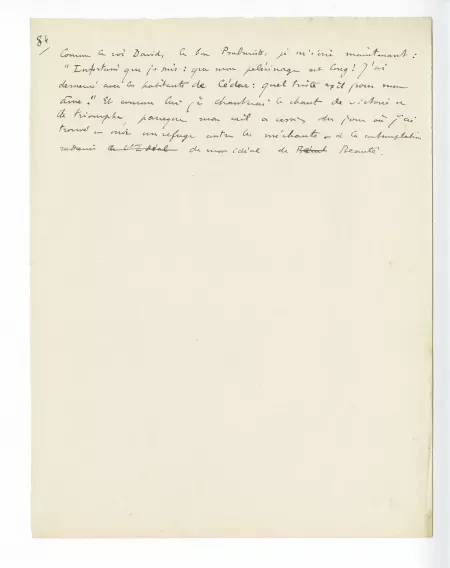 84
Comme le roi David, le bon Psalmiste, je m'écrie maintenant :
"Infortuné que je suis : que mon pèlerinage est long ! J'ai
demeuré avec les habitants de Cédar : quel triste exil pour mon
âme !" Et comme lui j'ai chanterai le chant de victoire et
de triomphe, parceque mon exil a cessé du jour où j'ai
trouvé un refuge contre les méchants la contemplation
de mon idéal de Beauté.